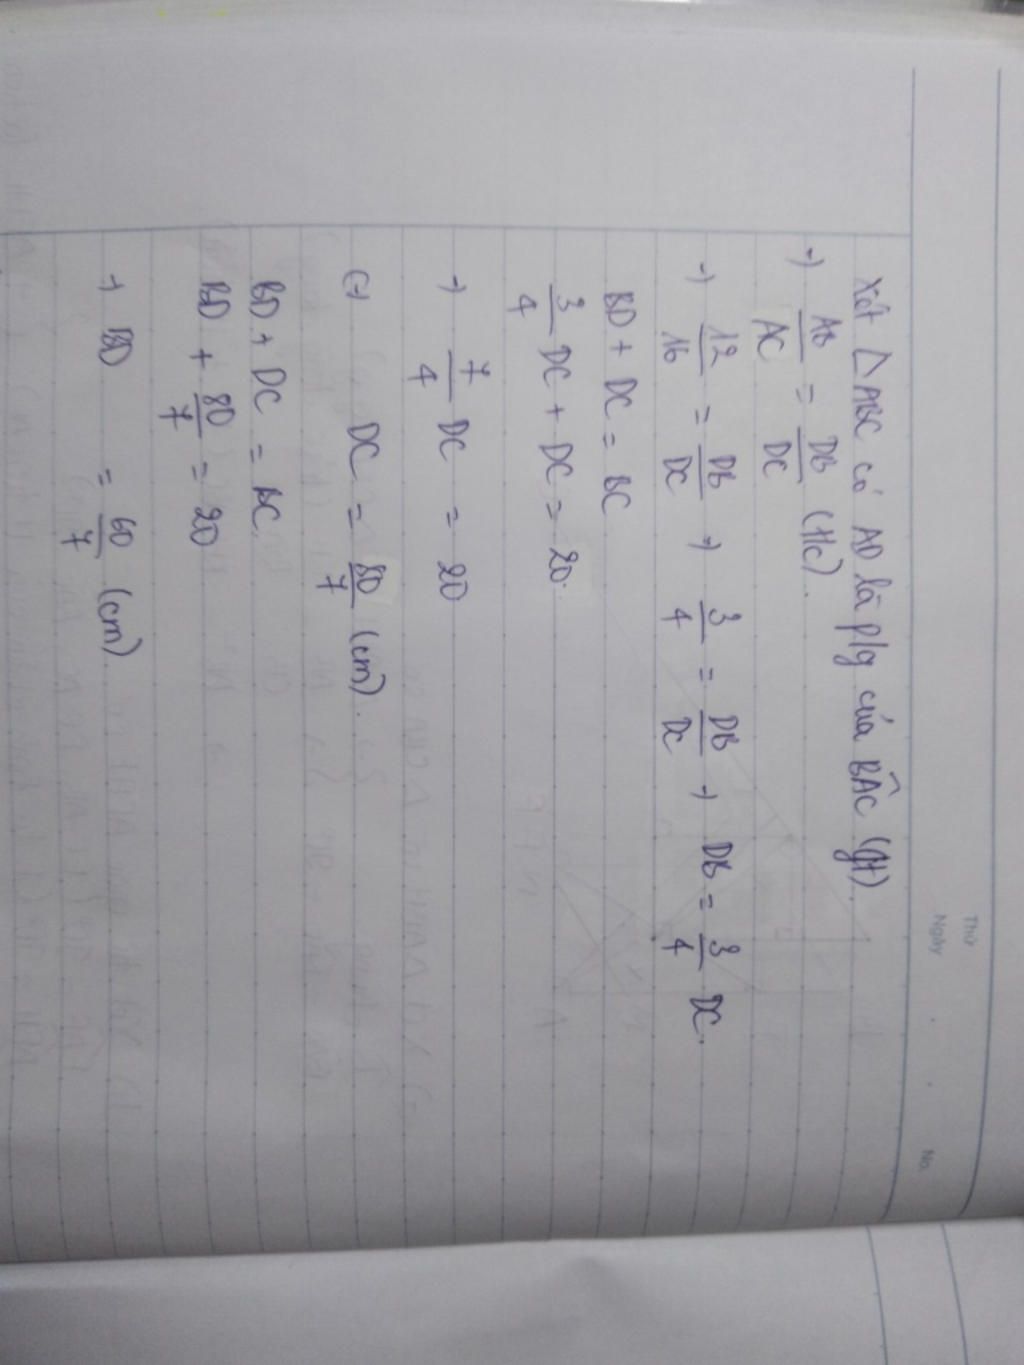 Thứ
Ngày
No.
Xét △ABC có AD là p/g của BÂC (gt).
→ AB/AC = DB/DC (t/c).
→ 12/16 = DB/DC → 3/4 = DB/DC → DB = 3/4 DC.
BD + DC = BC
3/4 DC + DC = 20.
→ 7/4 DC = 20
DC = 80/7 (cm).
BD + DC = BC
BD + 80/7 = 20
→ BD = 60/7 (cm).